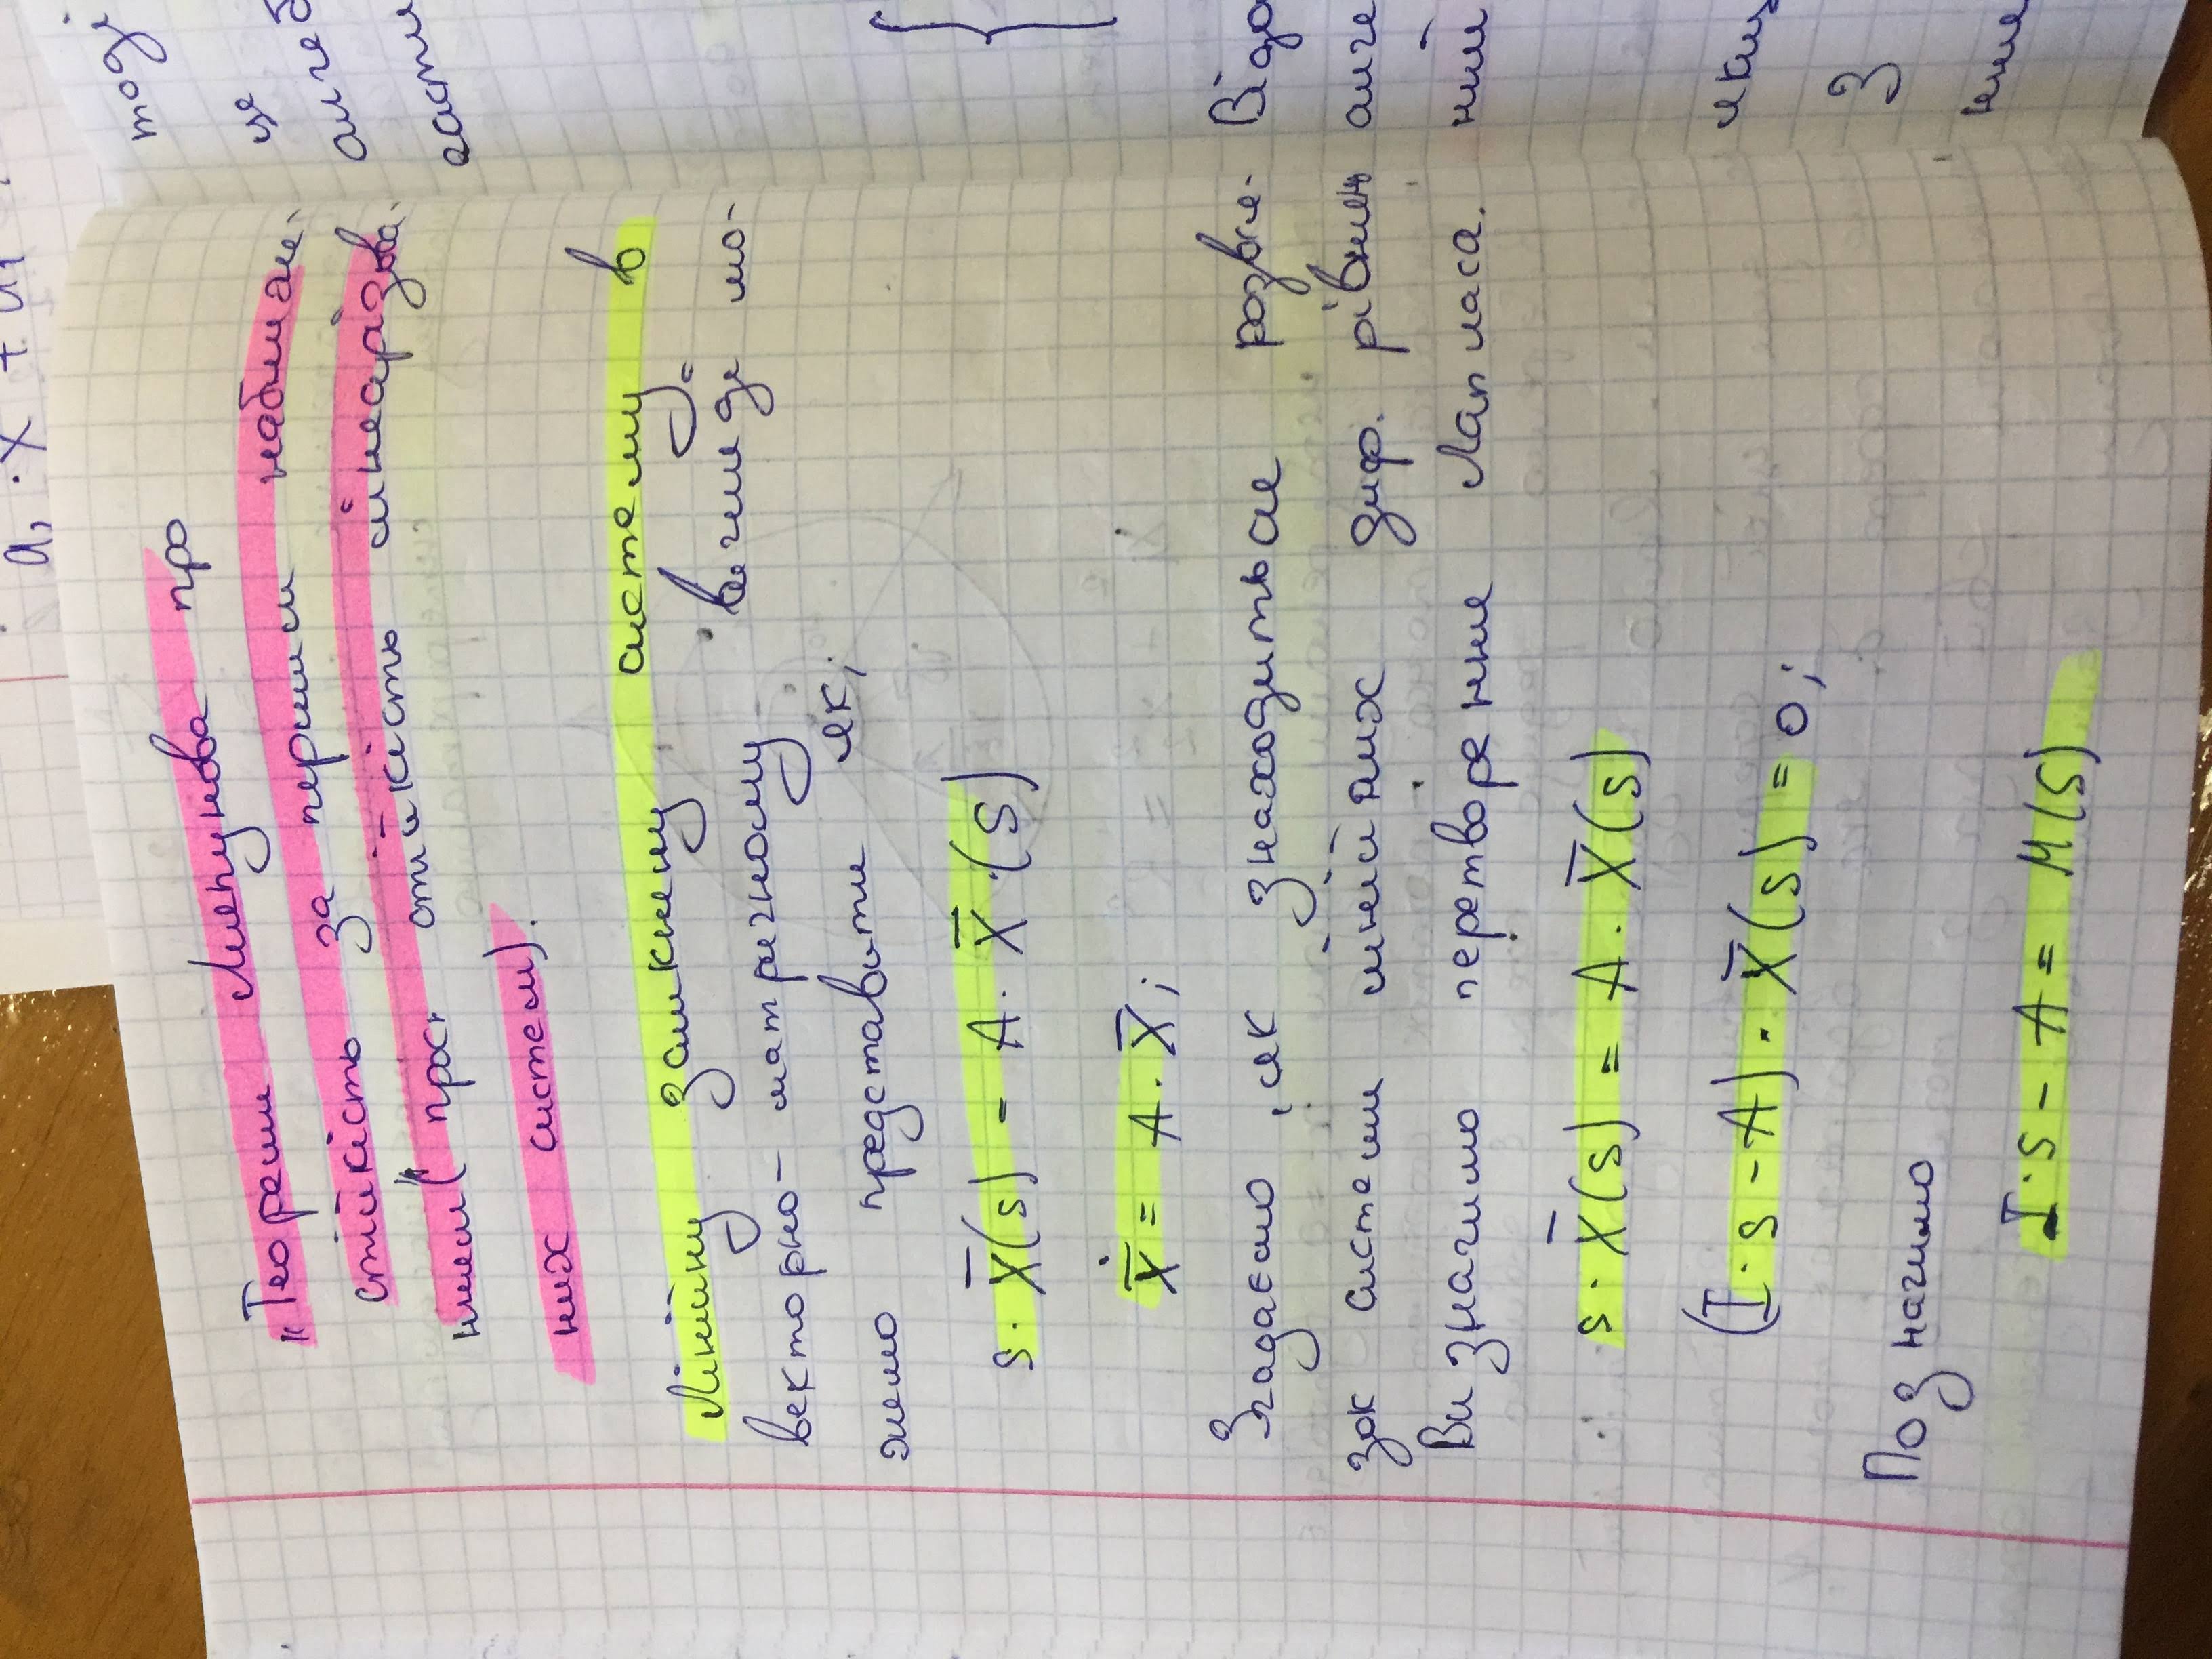 a₁ · X + a₁
„Теореми Ляпунова про
стійкість за першим наближе-
нням“ (про стійкість лінеарізова-
них систем).
Лінійну замкнену систему в
векторно-матричному вигляді мо-
жемо представити як;
s · X̄(s) = A · X̄ · (S)
Ẋ̄ = A · X̄;
Згадаємо, як знаходиться розвʼя-
зок системи лінійних диф. рівнянь
Визначимо перетворення Лапласа.
s · X̄(s) = A · X̄(s)
(I · s - A) · X̄(s) = 0;
Позначимо
I · s - A = M(S)
тоді
це
алгеб
части
Відо
алге
ний
якщ
З
ння